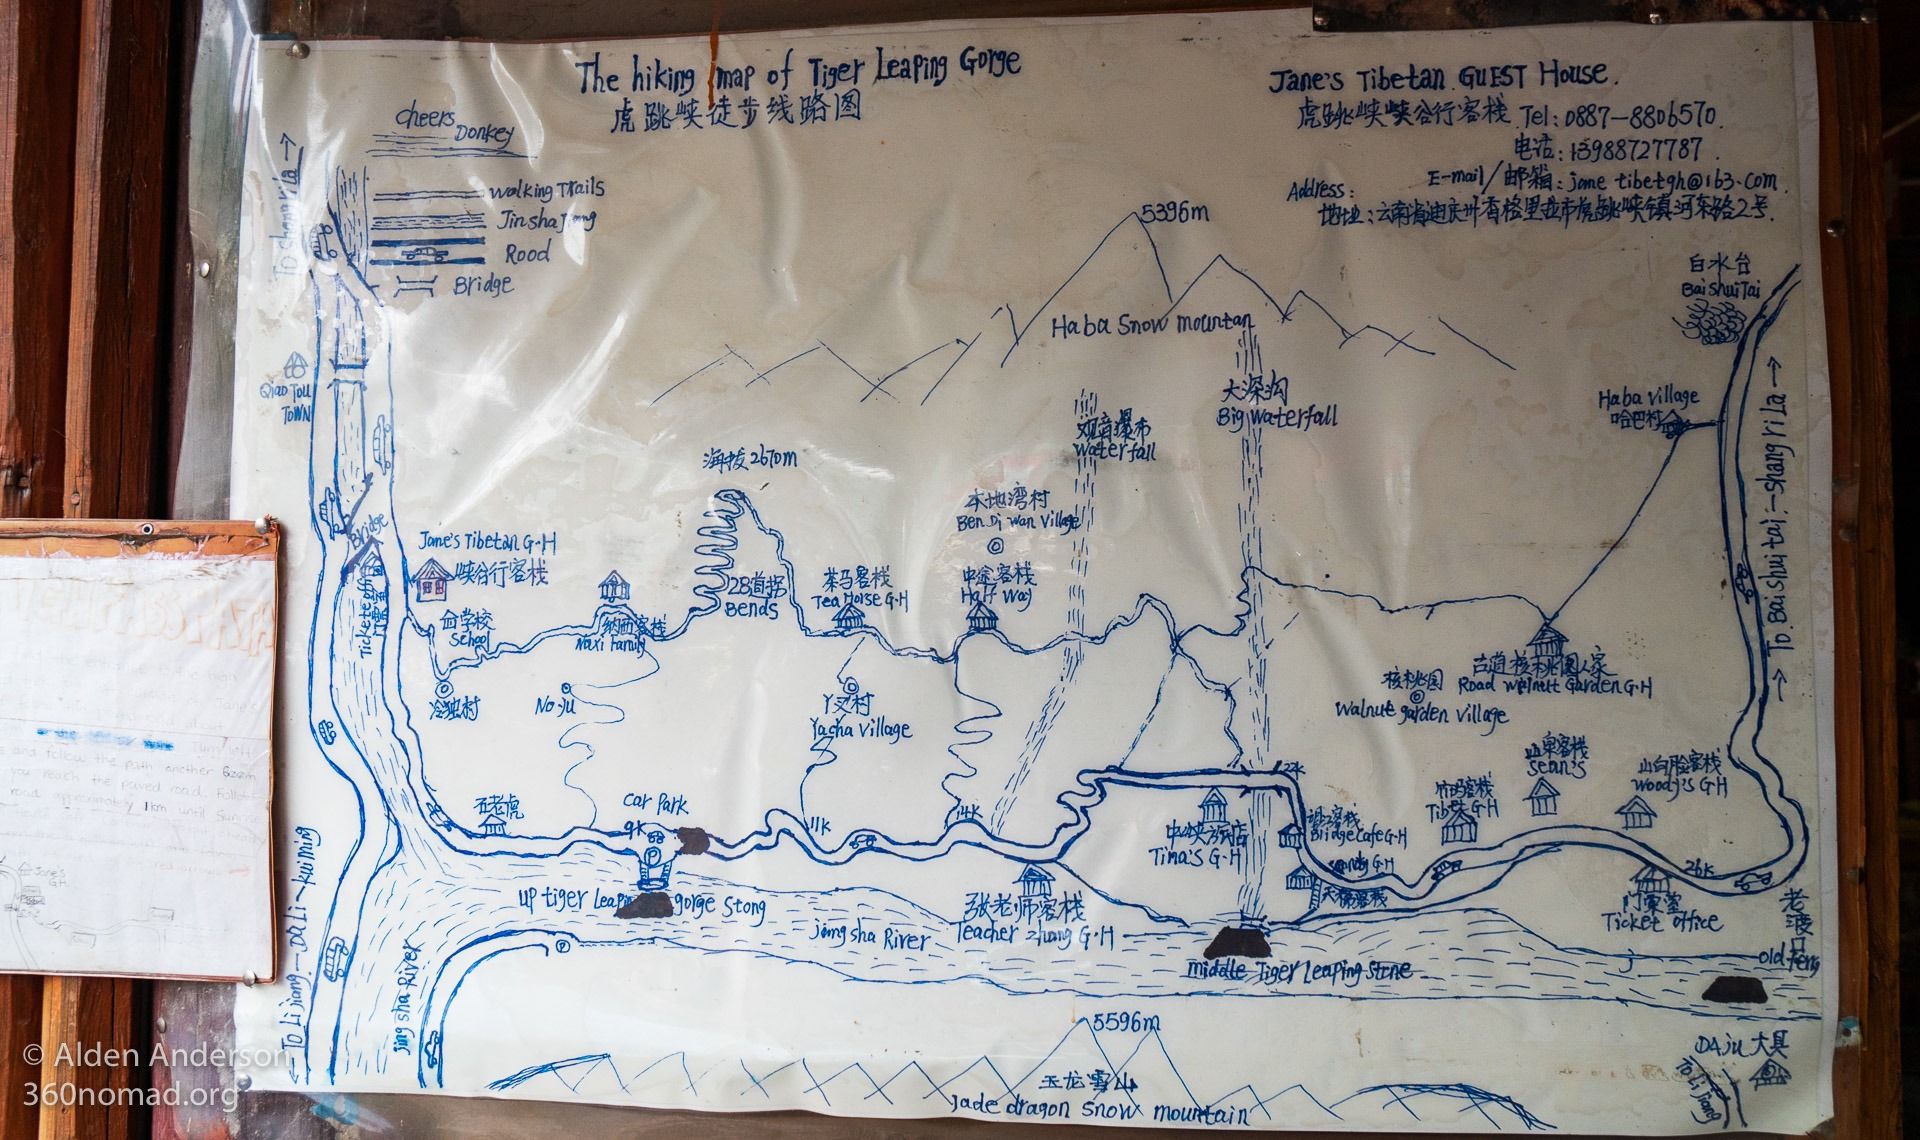 The hiking map of Tiger Leaping Gorge
虎跳峡徒步线路图
Jane's Tibetan GUEST House.
虎跳峡峡谷行客栈 Tel: 0887-8806570.
电话: 13988727787.
E-mail/邮箱: jane tibetgh@163.com.
Address:
地址: 云南省迪庆州香格里拉市虎跳峡镇河东路2号.
cheers
Donkey
walking Trails
Jinsha Jiang
Rood
Bridge
To shangrila →
Qiao Tou
Town
Bridge
Tickete office
Jane's Tibetan G·H
峡谷行客栈
学校
School
纳西客栈
Naxi Family
海拔2670m
28道拐
Bends
茶马客栈
Tea Horse G·H
本地湾村
Ben Di Wan Village
中途客栈
Half Way
5396m
Haba Snow mountan
观音瀑布
Waterfall
大深沟
Big Waterfall
白水台
BaiShuiTai
Haba Village
哈巴村
To. Baishuitai.—shangrila →
冷独村
No.ju
丫叉村
Yacha Village
核桃园
Walnut garden Village
古道核桃园人家
Road Walnut Garden G·H
山泉客栈
Sean's
山白脸客栈
Woody's G·H
Tibet G·H
car Park
9K
P
11K
14K
24
26K
中峡旅店
Tina's G·H
Bridge Cafe G·H
Sandy G·H
天梯客栈
Ticket office
up tiger Leaping gorge Stong
jing sha River
张老师客栈
Teacher Zhang G·H
middle Tiger Leaping Stene
老渡口
old Ferry
To Lijiang—DaLi—kuiming
jing sha River
5596m
玉龙雪山
Jade dragon snow mountain
DAju 大具
To Lijiang
Jane's
GH
and follow the path another
you reach the paved road. Follow
road approximately 1km until
© Alden Anderson
360nomad.org